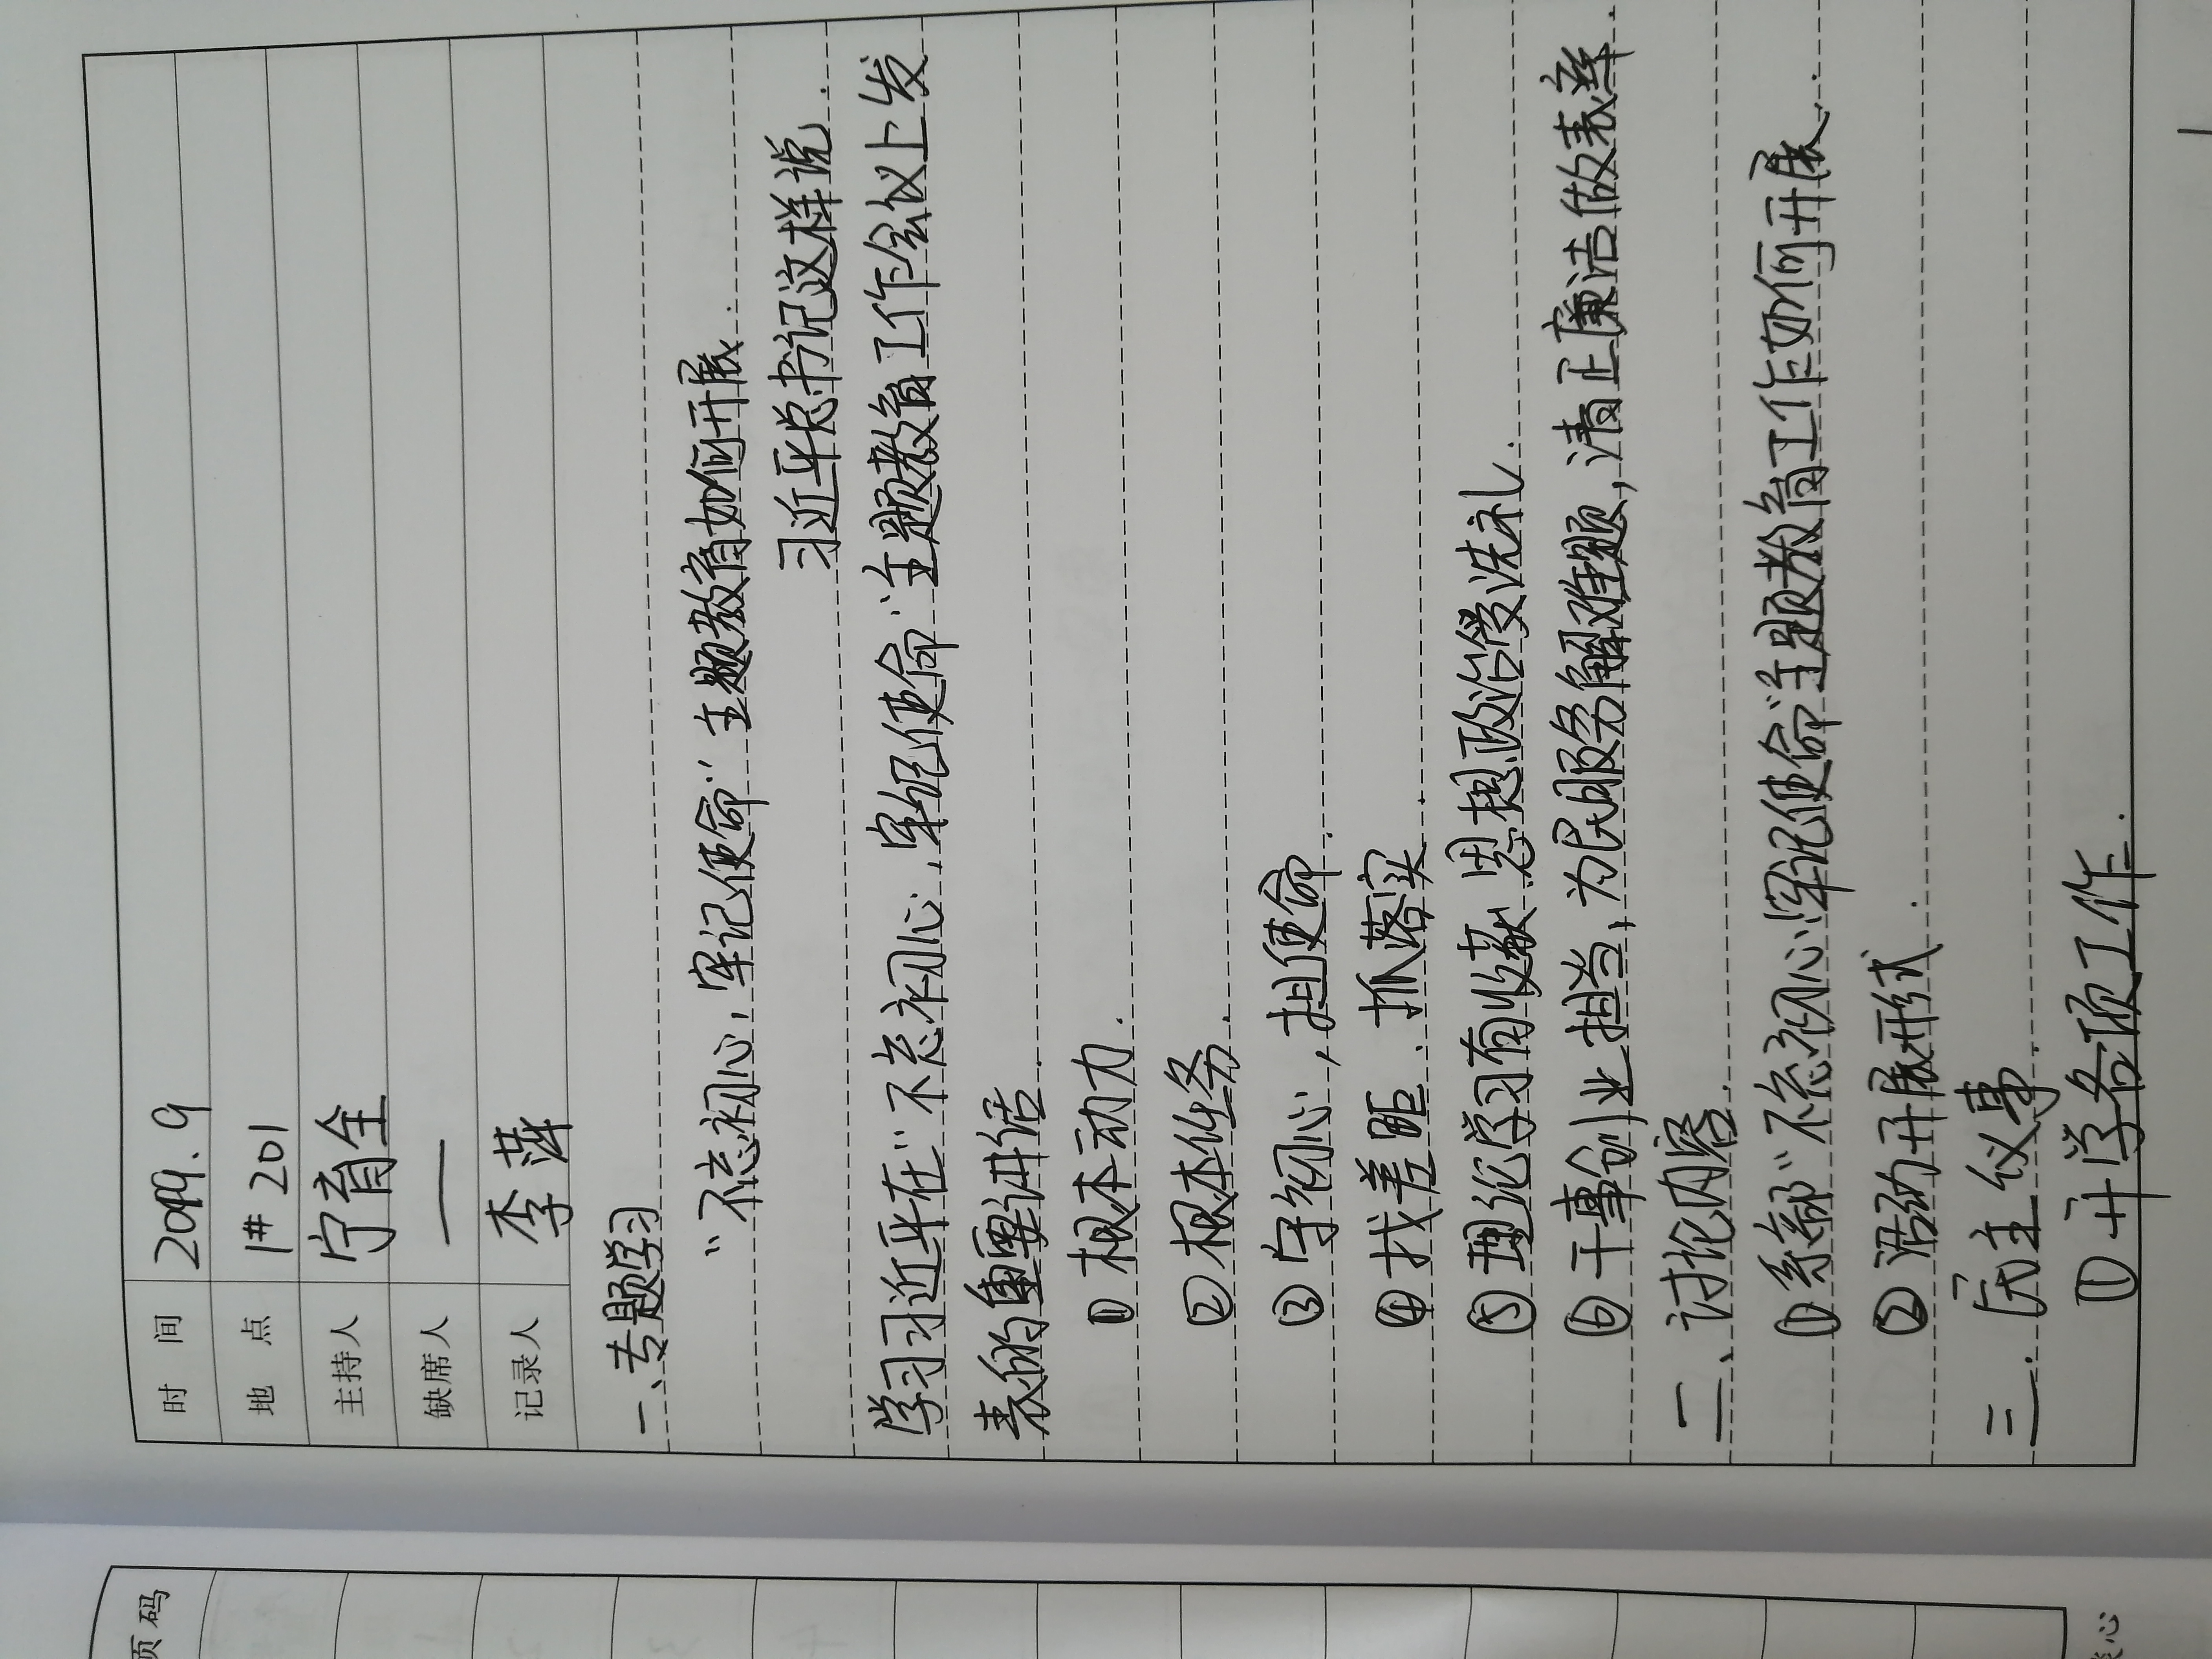 时 间 2019.9
地 点 1# 201
主持人 宁育全
缺席人 —
记录人 李萍
一、专题学习
“不忘初心,牢记使命”主题教育如何开展.
习近平总书记这样说.
学习习近平在“不忘初心,牢记使命”主题教育工作会议上发
表的重要讲话.
① 根本动力.
② 根本任务.
③ 守初心,担使命.
④ 找差距.抓落实.
⑤ 理论学习有收获.思想政治受洗礼.
⑥ 干事创业担当,为民服务解难题,清正廉洁做表率.
二、讨论内容.
① 系部“不忘初心牢记使命”主题教育工作如何开展.
② 活动开展形式.
三.民主议事.
① 开学各项工作.
1
页码